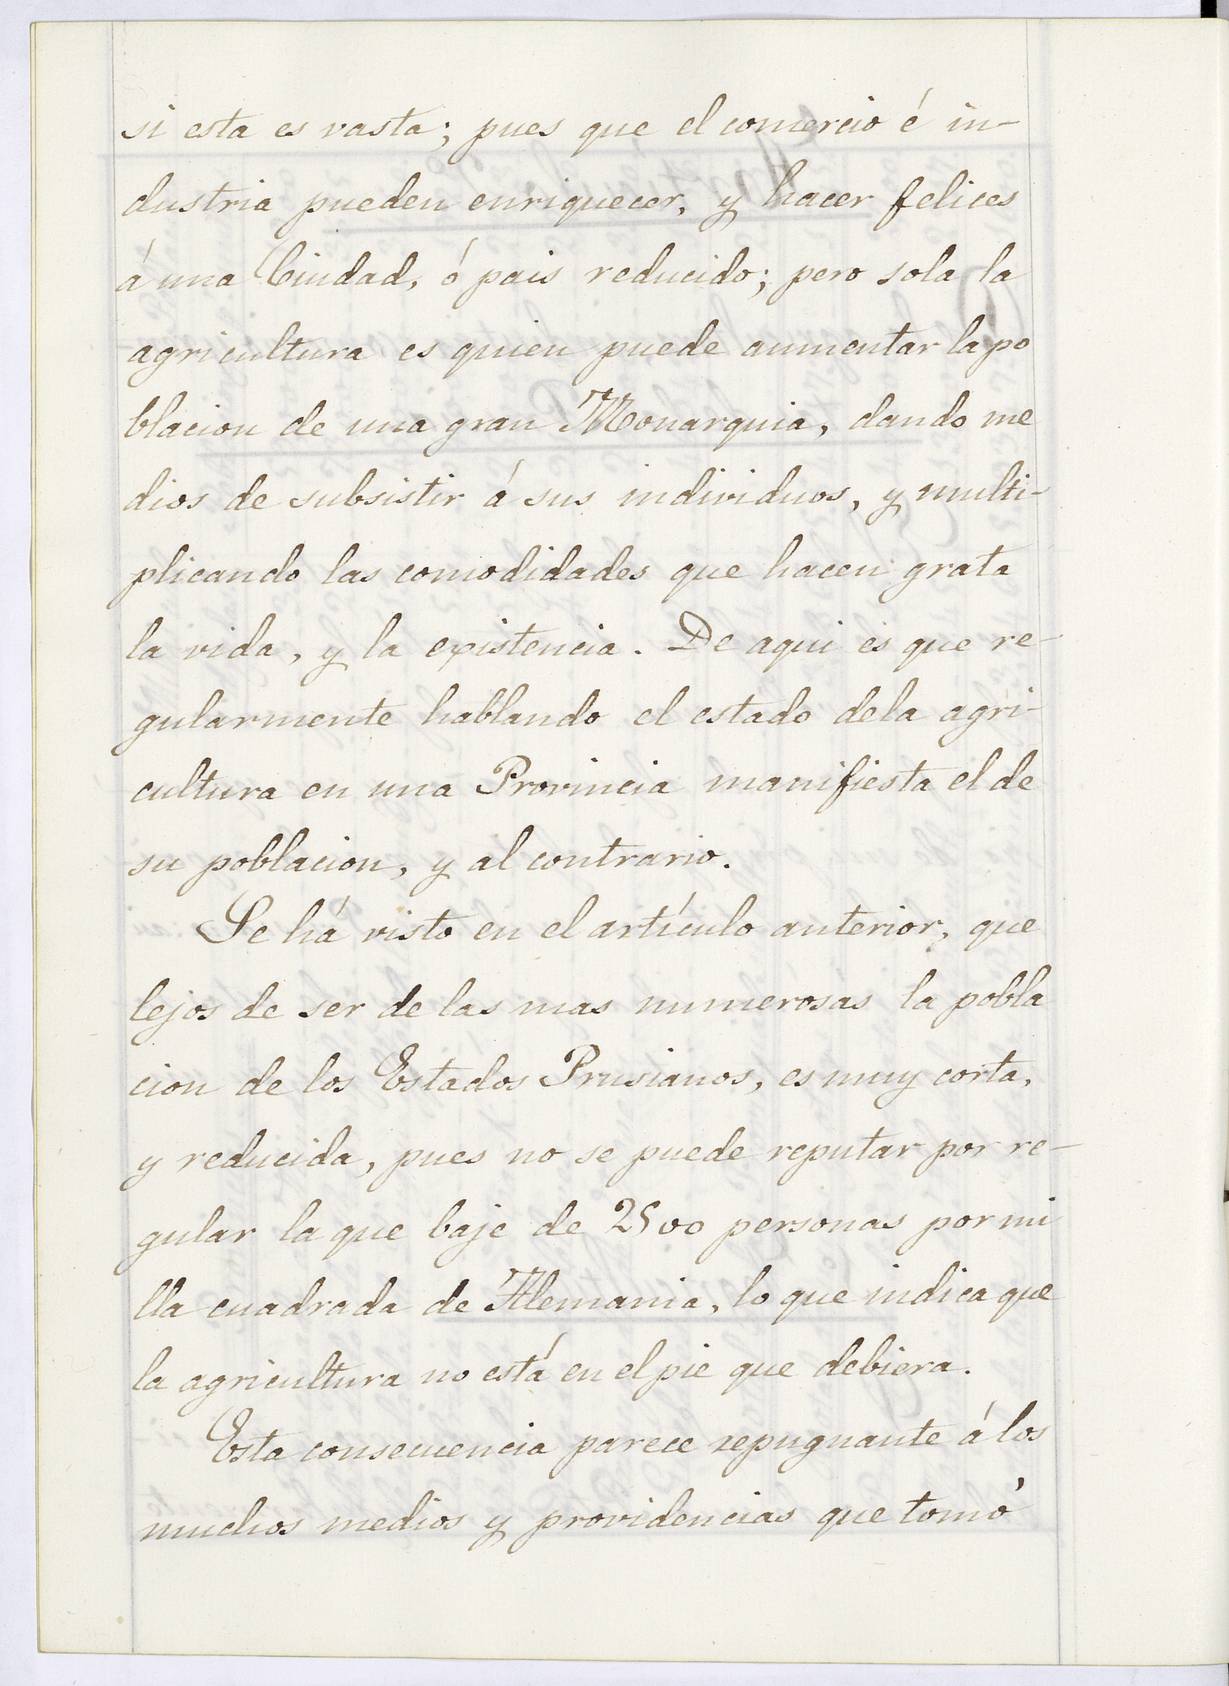 si esta es vasta; pues que el comercio é in-
dustria pueden enriquecer, y hacer felices
á una Ciudad, ó pais reducido; pero sola la
agricultura es quien puede aumentar la po
blacion de una gran Monarquia, dando me
dios de subsistir á sus individuos, y multi-
plicando las comodidades que hacen grata
la vida, y la existencia. De aqui es que re-
gularmente hablando el estado dela agri-
cultura en una Provincia manifiesta el de
su poblacion, y al contrario.
Se há visto en el artículo anterior, que
lejos de ser de las mas numerosas la pobla
cion de los Estados Prusianos, es muy corta,
y reducida, pues no se puede reputar por re-
gular la que baje de 2500 personas por mi
lla cuadrada de Alemania, lo que indica que
la agricultura no está en el pie que debiera.
Esta consecuencia parece repugnante á los
muchos medios y providencias que tomó